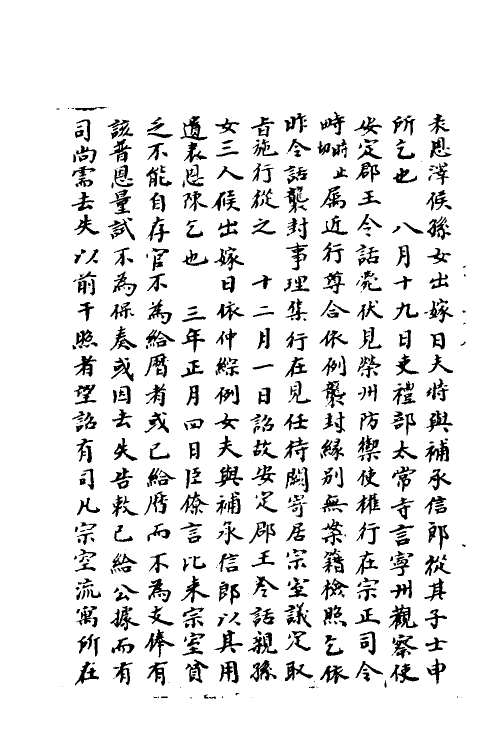 表恩澤候孫女出嫁日夫將與補承信郎從其子士申
所乞也　八月十九日吏禮部太常寺言寧州觀察使
安定郡王令話薨伏見榮州防禦使權行在宗正司令
時時止屬近行尊合依例襲封緣別無案籍檢照乞依
昨令話襲封事理集行在見任待闕寄居宗室議定取
旨施行從之　十二月一日詔故安定郡王令話親孫
女三人候出嫁日依仲綜例女夫與補承信郎以其用
遺表恩陳乞也　三年正月四日臣僚言比来宗室貧
乏不能自存官不為給曆者或已給曆而不為支俸有
該普恩量試不為保奏或因去失告敕已給公據而有
司尚需去失以前干照者望詔有司凡宗室流寓所在